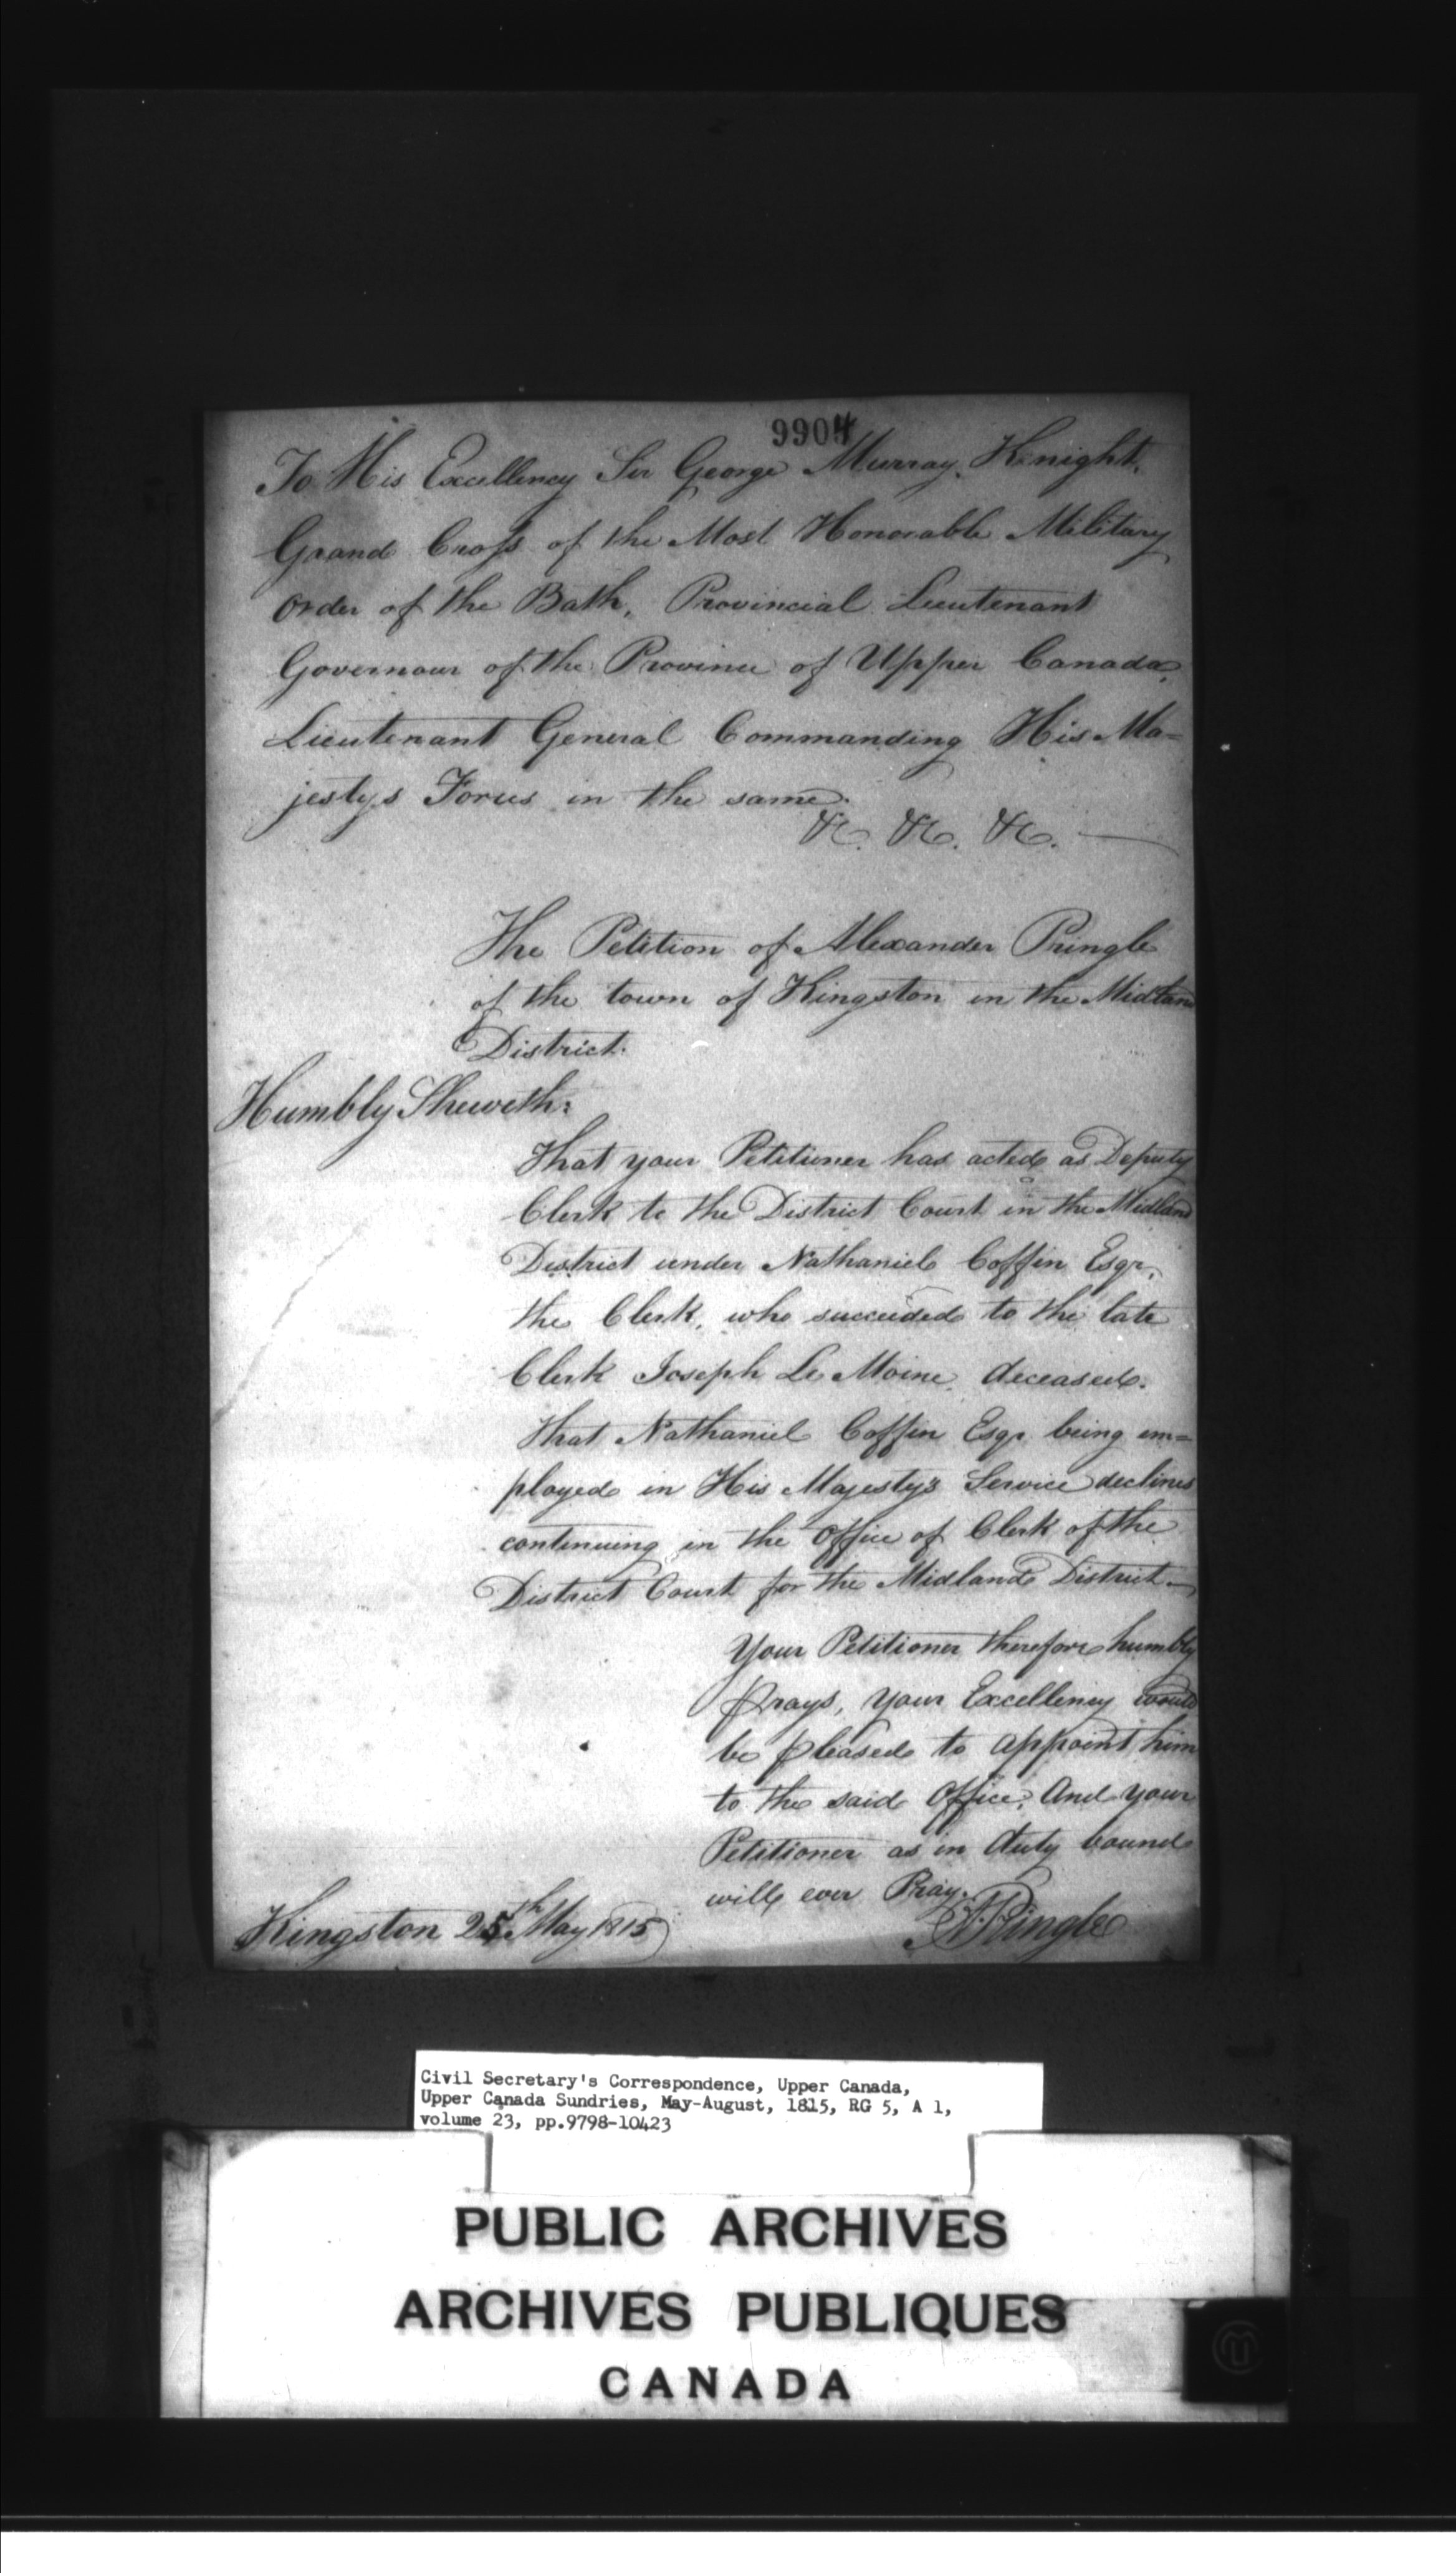 9904
To His Excellency Sir George Murray, Knight,
Grand Cross of the Most Honorable Military
Order of the Bath, Provincial Lieutenant
Governour of the Province of Upper Canada,
Lieutenant General Commanding His Ma=
jestys Forces in the same.
&c. &c. &c.
The Petition of Alexander Pringle
of the town of Kingston in the Midland
District.
Humbly Sheweth:
That your Petitioner has acted as Deputy
Clerk to the District Court in the Midland
District under Nathaniel Coffin Esqr.
the Clerk, who succeeded to the late
Clerk Joseph Le Moine, deceased.
That Nathaniel Coffin Esqr. being em=
ployed in His Majesty's Service declines
continuing in the Office of Clerk of the
District Court for the Midland District.
Your Petitioner therefore humbly
prays, your Excellency would
be pleased to appoint him
to the said Office; And your
Petitioner as in duty bound
will ever Pray.
Kingston 25th May 1815
A Pringle
Civil Secretary's Correspondence, Upper Canada,
Upper Canada Sundries, May-August, 1815, RG 5, A 1,
volume 23, pp.9798-10423
PUBLIC ARCHIVES
ARCHIVES PUBLIQUES
CANADA